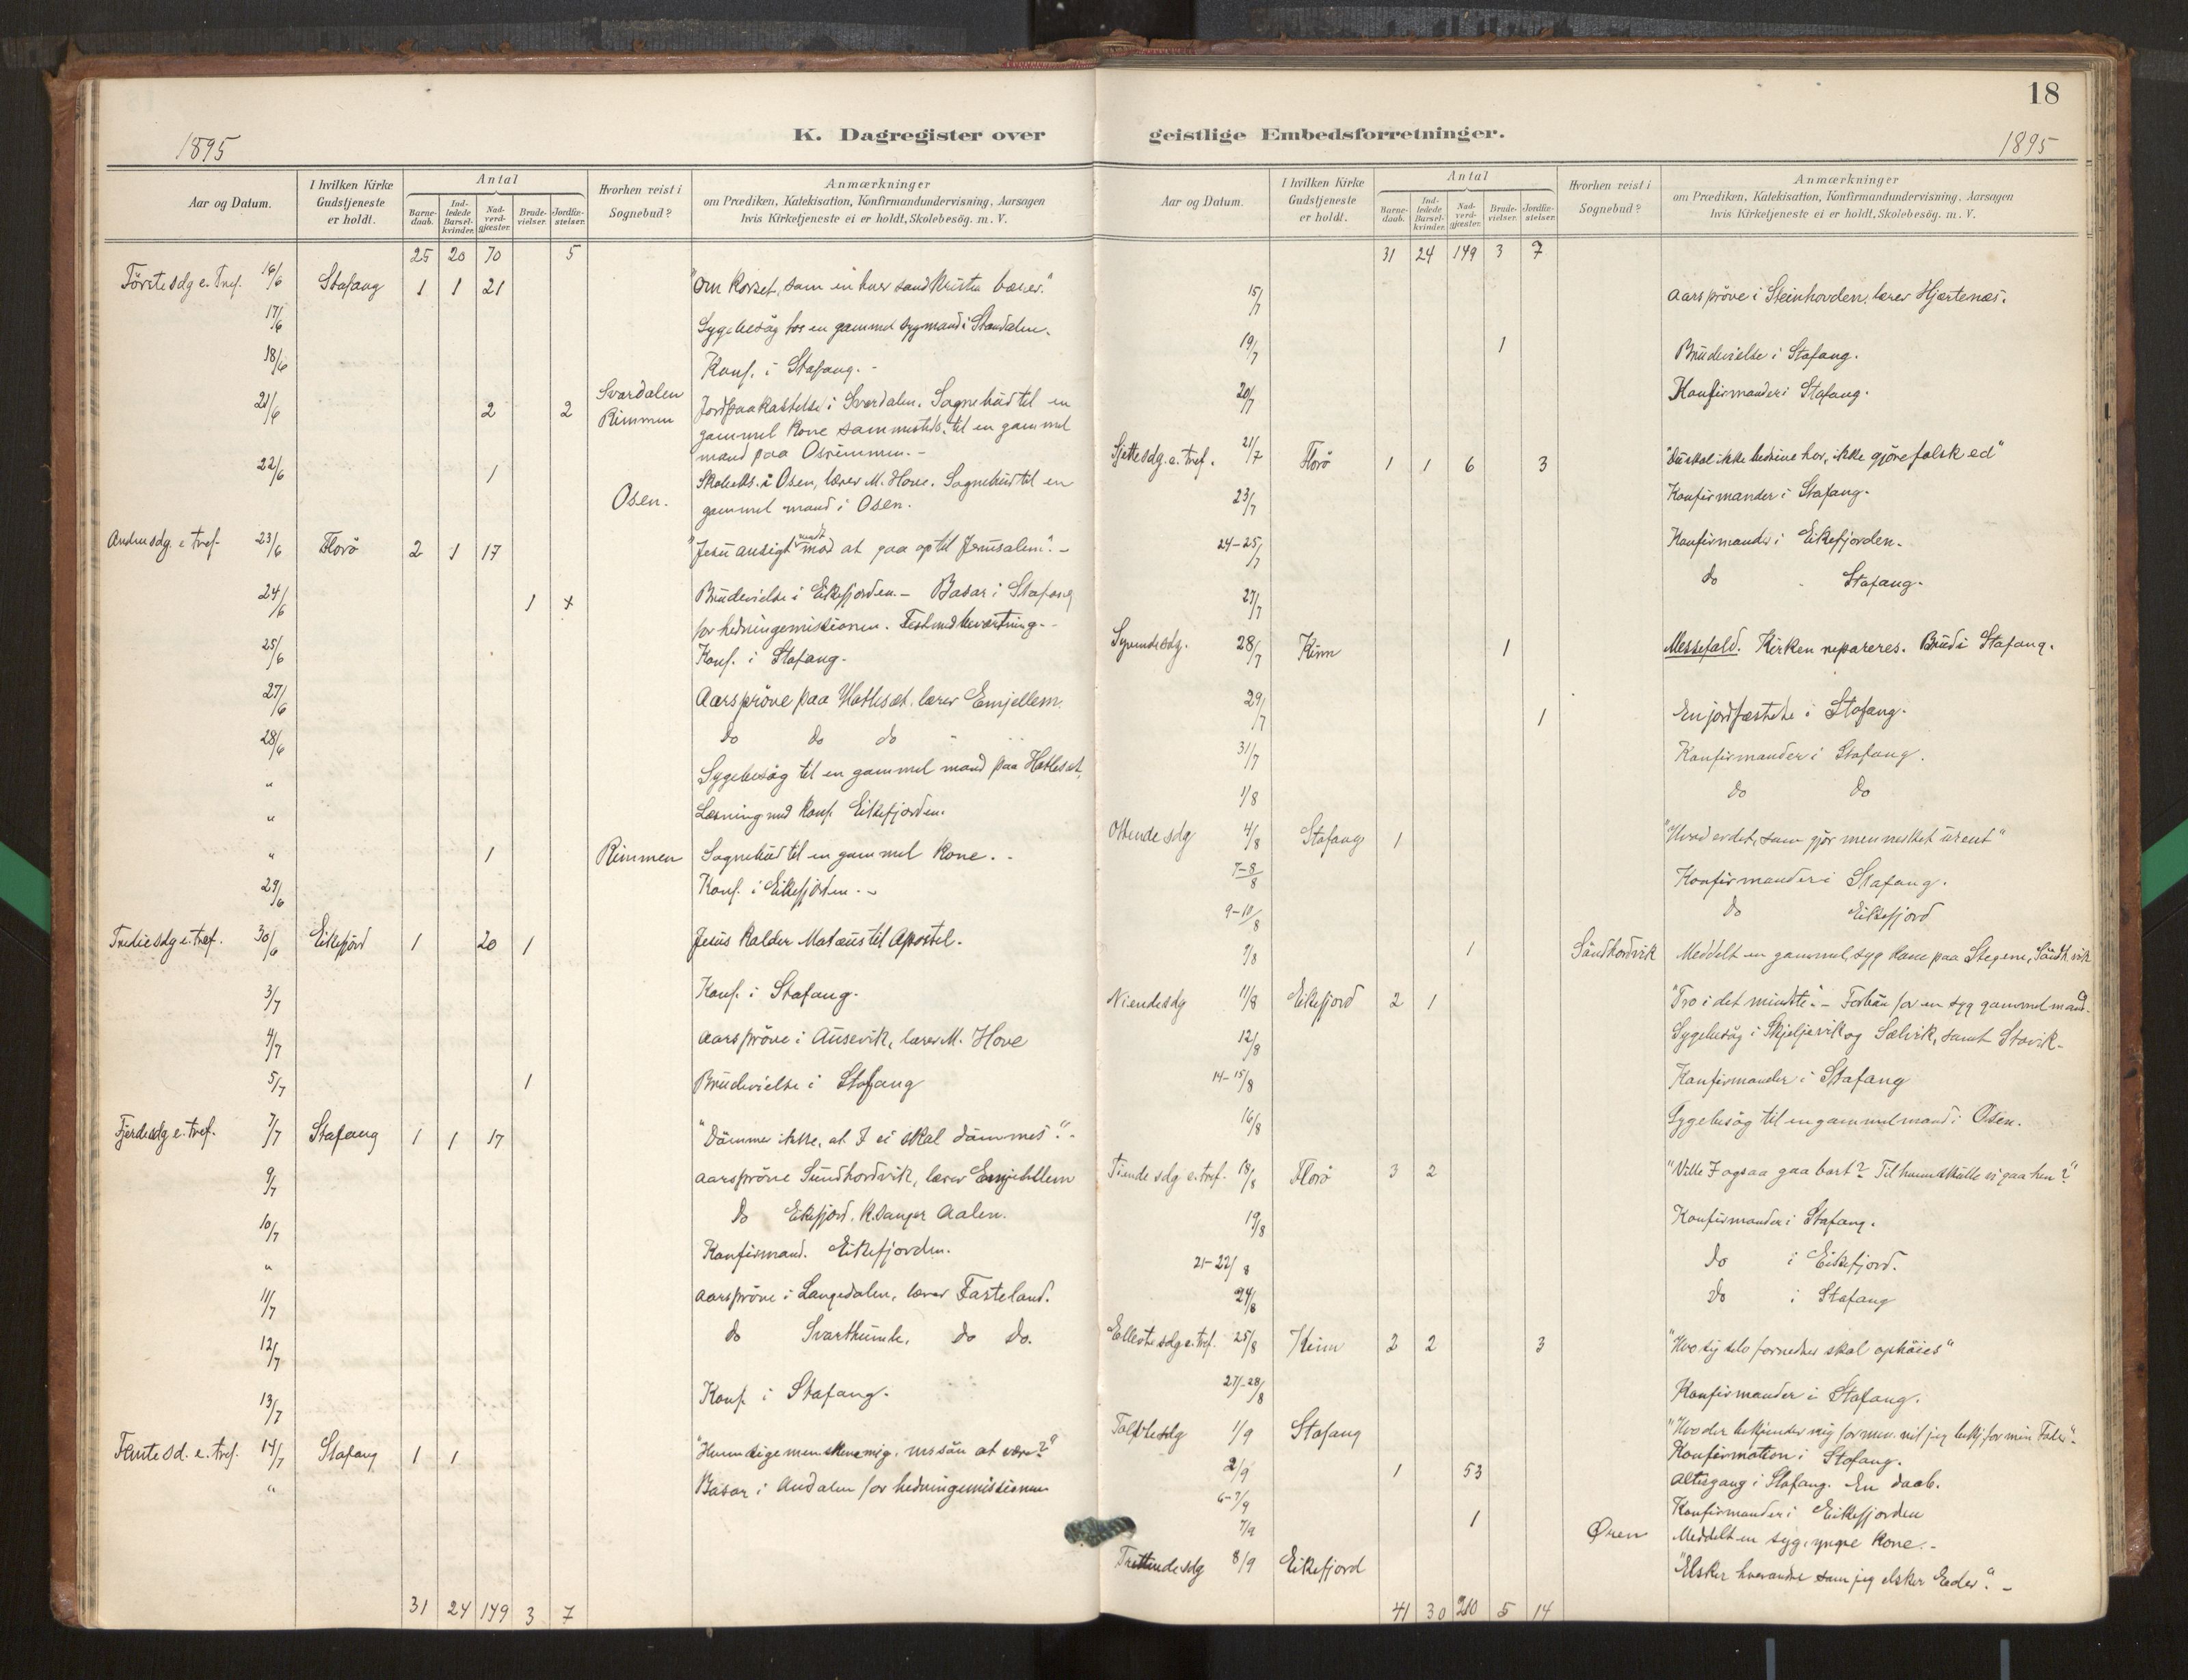 1895
K. Dagregister over
Aar og Datum.
I hvilken Kirke Gudstjeneste er holdt.
Antal
Barnedaab.
Indledede Barselkvinder.
Nadverdgjæster.
Brudevielser.
Jordfæstelser.
Hvorhen reist i Sognebud?
Anmærkninger
om Prædiken, Katekisation, Konfirmandundervisning, Aarsagen
hvis Kirketjeneste ei er holdt, Skolebesög. m. V.
25 20 70 5
Förstesdg e. Tref. 16/6 Stafang 1 1 21 "Om korset, som en hver sand kristen bærer."
17/6 Sygebesög hos en gammel sygmand i Standalen.
18/6 Konf. i Stafang. -
21/6 2 2 Svardalen Rimmen Jordpaakastelse i Svardalen. Sognebud til en
gammel kone sammesteds, til en gammel
mand paa Osrimmen. -
22/6 1 Osen. Skolebes. i Osen, lærer M. Hove. Sognebud til en
gammel mand i Osen.
Andensdg. e tref. 23/6 Florö 2 1 17 "Jesu ansigt vendt mod at gaa op til Jerusalem". -
24/6 1 + Brudevielse i Eikefjorden. - Basar i Stafang
for hedningemissionen. Fest med bevertning. -
25/6 Konf. i Stafang.
27/6 Aarspröve paa Hatleset, lærer Emjellem.
28/6 do do do
" Sygebesög til en gammel mand paa Hatleset.
" Læsning med konf. Eikefjorden.
" 1 Rimmen Sognebud til en gammel kone. -
29/6 Konf. i Eikefjorden. -
Tredie sdg e. tref. 30/6 Eikefjord 1 20 1 Jesus kalder Matæus til Apostel.
3/7 Konf. i Stafang.
4/7 Aarspröve i Ausevik, lærer M. Hove
5/7 1 Brudevielse i Stafang
Fjerdesdg e. tref. 7/7 Stafang 1 1 17 "Dömmer ikke, at I ei skal dömmes". -
9/7 Aarspröve Sundhordvik, lærer Emjellem
10/7 do Eikefjord, K. sanger Aalen.
" Konfirmand. Eikefjorden.
11/7 Aarspröve i Langedalen, lærer Fasteland.
12/7 do Svarthumle, do do.
13/7 Konf. i Stafang.
Femte sd. e. tref. 14/7 Stafang 1 1 "Hvem sige menskene mig, mssön at være?"
" Basar i Andalen for hedningemissionen
31 24 149 3 7
18
geistlige Embedsforretninger.
1895
Aar og Datum.
I hvilken Kirke Gudstjeneste er holdt.
Antal
Barnedaab.
Indledede Barselkvinder.
Nadverdgjæster.
Brudevielser.
Jordfæstelser.
Hvorhen reist i Sognebud?
Anmærkninger
om Prædiken, Katekisation, Konfirmandundervisning, Aarsagen
hvis Kirketjeneste ei er holdt, Skolebesög. m. V.
31 24 149 3 7
15/7 Aarspröve i Steinhovden, lærer Hjertenæs.
19/7 1 Brudevielse i Stafang.
20/7 Konfirmander i Stafang.
Sjettesdg. e. tref. 21/7 Florö 1 1 6 3 "Du skal ikke bedrive hor, ikke gjöre falsk ed"
23/7 Konfirmander i Stafang.
24-25/7 Konfirmander i Eikefjorden.
27/7 do Stafang.
Syvendesdg. 28/7 Kinn 1 Messefald. Kirken repareres. Brud i Stafang.
29/7 1 En jordfæstelse i Stafang.
31/7 Konfirmander i Stafang.
1/8 do do
Ottende sdg 4/8 Stafang 1 "Hvad er det, som gjör mennesket urent"
7-8/8 Konfirmander i Stafang.
9-10/8 do Eikefjord
9/8 1 Sundhordvik Meddelt en gammel, syg kone paa Stegene, Sundh.vik
Niendesdg 11/8 Eikefjord 2 1 "Tro i det mindste". - Forbön for en syg gammel mand.
12/8 Sygebesög i Skjeljavik og Sælvik, samt Stavik.
14-15/8 Konfirmander i Stafang
16/8 Sygebesög til en gammel mand i Osen.
Tiende sdg e. tref. 18/8 Florö 3 2 "Ville I ogsaa gaa bort? Til hvem skulle vi gaa hen?"
19/8 Konfirmander i Stafang.
21-22/8 do i Eikefjord.
24/8 do i Stafang
Ellevtesdg e. tref. 25/8 Kinn 2 2 3 "Hvo sig selv fornedrer skal ophöies"
27-28/8 Konfirmander i Stafang.
Tolvtesdg 1/9 Stafang "Hvo der bekjender mig for men. vil jeg bekj. for min Fader". -
Konfirmation i Stafang.
2/9 1 53 Altergang i Stafang. En daab.
6-7/9 Konfirmander i Eikefjorden
7/9 1 Øren Meddelt en syg, yngre kone. -
Trettende sdg 8/9 Eikefjord "Elsker hverandre som jeg elsker Eder". -
41 30 210 5 14